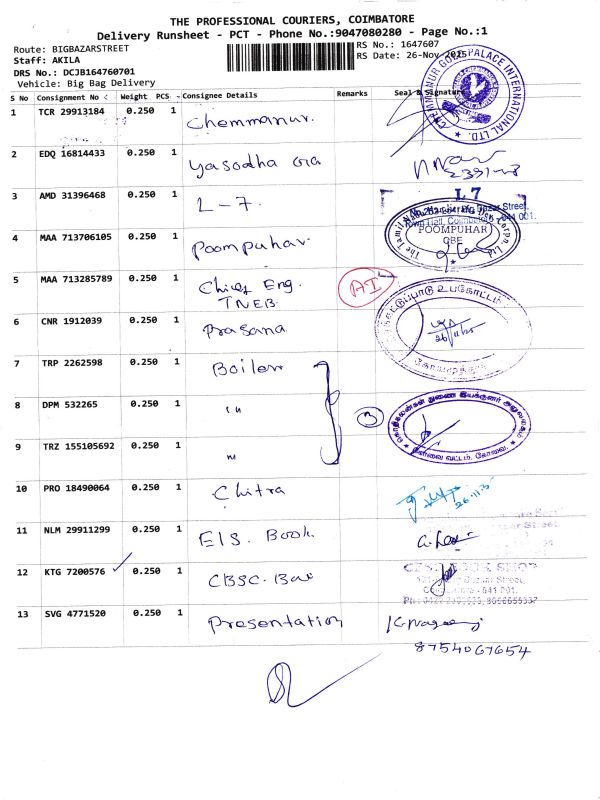 THE PROFESSIONAL COURIERS, COIMBATORE
Delivery Runsheet - PCT - Phone No.:9047080280 - Page No.:1
Route: BIGBAZARSTREET
RS No.: 1647607
Staff: AKILA
RS Date: 26-Nov-2025
DRS No.: DCJB164760701
Vehicle: Big Bag Delivery
S No Consignment No Weight PCS Consignee Details Remarks Seal & Signature
1 TCR 29913184 0.250 1 Chemmanur.
CHEMMANUR GOLD PALACE INTERNATIONAL LTD.
2 EDQ 16814433 0.250 1 Yasodha
3 AMD 31396468 0.250 1 L-7.
L 7
Bazar Street,
Town Hall, Coimbatore - 641 001.
4 MAA 713706105 0.250 1 Poompuhar
POOMPUHAR
CBE
5 MAA 713285789 0.250 1 Chief Eng.
TNEB.
AI
6 CNR 1912039 0.250 1 Prasana
26/11/25
7 TRP 2262598 0.250 1 Boiler
8 DPM 532265 0.250 1 "
3
9 TRZ 155105692 0.250 1 "
10 PRO 18490064 0.250 1 Chitra
26.11.25
11 NLM 29911299 0.250 1 EIS. Book
12 KTG 7200576 0.250 1 CBSC.
CBSE BOOK SHOP
Bazaar Street,
Coimbatore - 641 001.
13 SVG 4771520 0.250 1 Presentation
8754067654